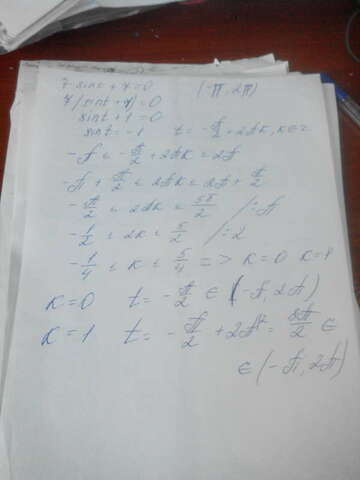 7 sint + 7 = 0 (-π, 2π)
7(sint + 1) = 0
sint + 1 = 0
sint = -1 t = -π/2 + 2πk, k ∈ z
-π < -π/2 + 2πk < 2π
-π + π/2 < 2πk < 2π + π/2
-π/2 < 2πk < 5π/2 /:π
-1/2 < 2k < 5/2 /:2
-1/4 < k < 5/4 => k = 0 k = 1
k = 0 t = -π/2 ∈ (-π, 2π)
k = 1 t = -π/2 + 2π = 3π/2 ∈
∈ (-π, 2π)